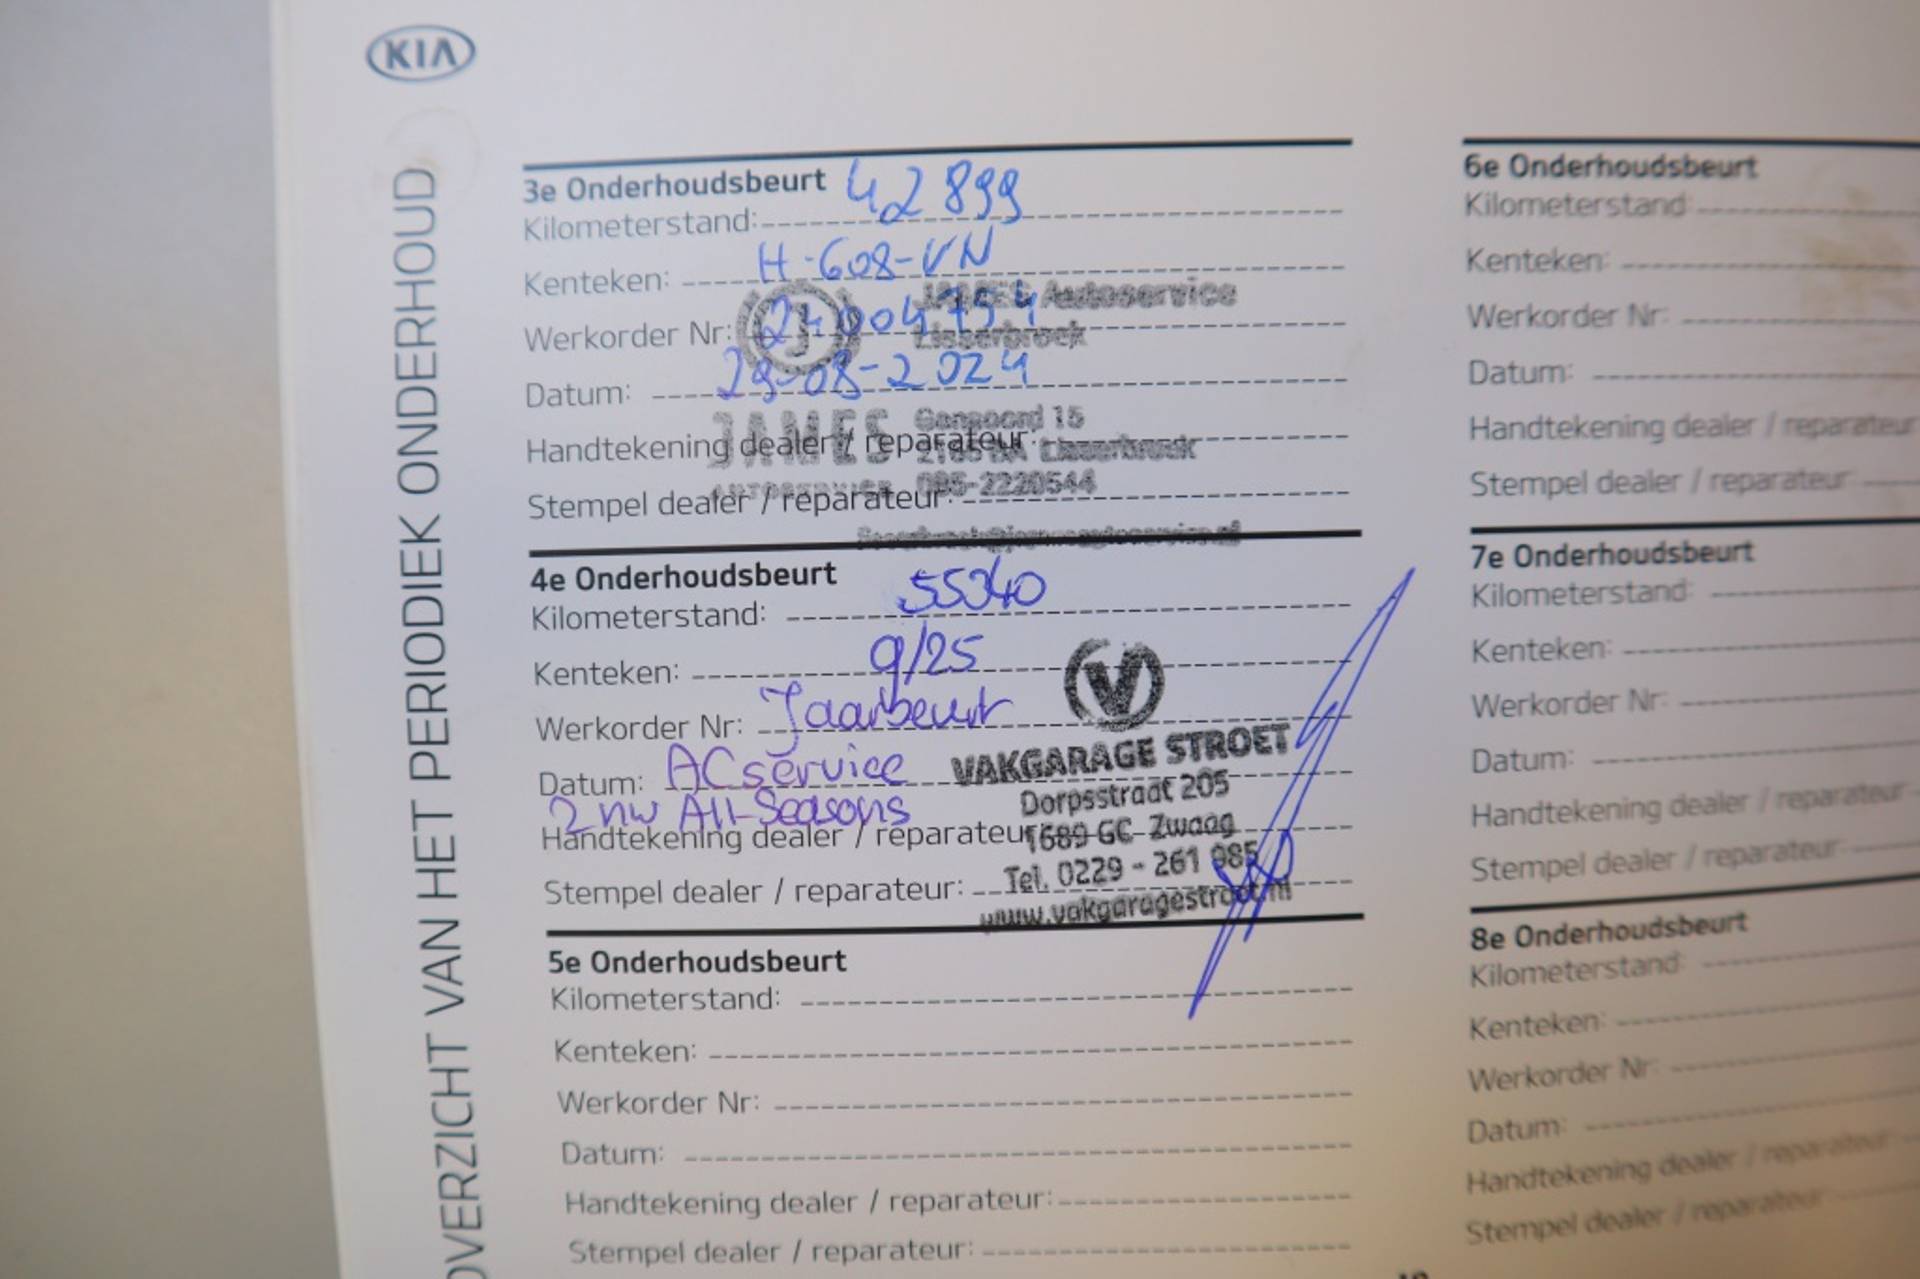 KIA
OVERZICHT VAN HET PERIODIEK ONDERHOUD
3e Onderhoudsbeurt
Kilometerstand: 42899
Kenteken: H-608-VN
Werkorder Nr: 24004754
Datum: 29-08-2024
Handtekening dealer / reparateur:
Stempel dealer / reparateur:
JAMES Autoservice
Lisserbroek
JAMES
AUTOSERVICE
15
Lisserbroek
085-2220544
4e Onderhoudsbeurt
Kilometerstand: 55340
Kenteken: 9/25
Werkorder Nr: Jaarbeurt
Datum: AC service
2 nw All-Seasons
Handtekening dealer / reparateur:
Stempel dealer / reparateur:
V
VAKGARAGE STROET
Dorpsstraat 205
1689 GC Zwaag
Tel. 0229 - 261 985
www.vakgaragestroet.nl
5e Onderhoudsbeurt
Kilometerstand:
Kenteken:
Werkorder Nr:
Datum:
Handtekening dealer / reparateur:
Stempel dealer / reparateur:
6e Onderhoudsbeurt
Kilometerstand:
Kenteken:
Werkorder Nr:
Datum:
Handtekening dealer / reparateur
Stempel dealer / reparateur:
7e Onderhoudsbeurt
Kilometerstand:
Kenteken:
Werkorder Nr:
Datum:
Handtekening dealer / reparateur:
Stempel dealer / reparateur:
8e Onderhoudsbeurt
Kilometerstand:
Kenteken:
Werkorder Nr:
Datum:
Handtekening dealer / reparateur:
Stempel dealer / reparateur: